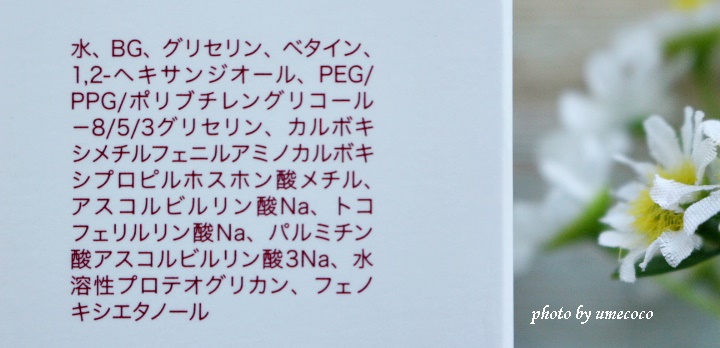 水、BG、グリセリン、ベタイン、
1,2-ヘキサンジオール、PEG/
PPG/ポリブチレングリコール
－8/5/3グリセリン、カルボキ
シメチルフェニルアミノカルボキ
シプロピルホスホン酸メチル、
アスコルビルリン酸Na、トコ
フェリルリン酸Na、パルミチン
酸アスコルビルリン酸3Na、水
溶性プロテオグリカン、フェノ
キシエタノール
photo by umecoco